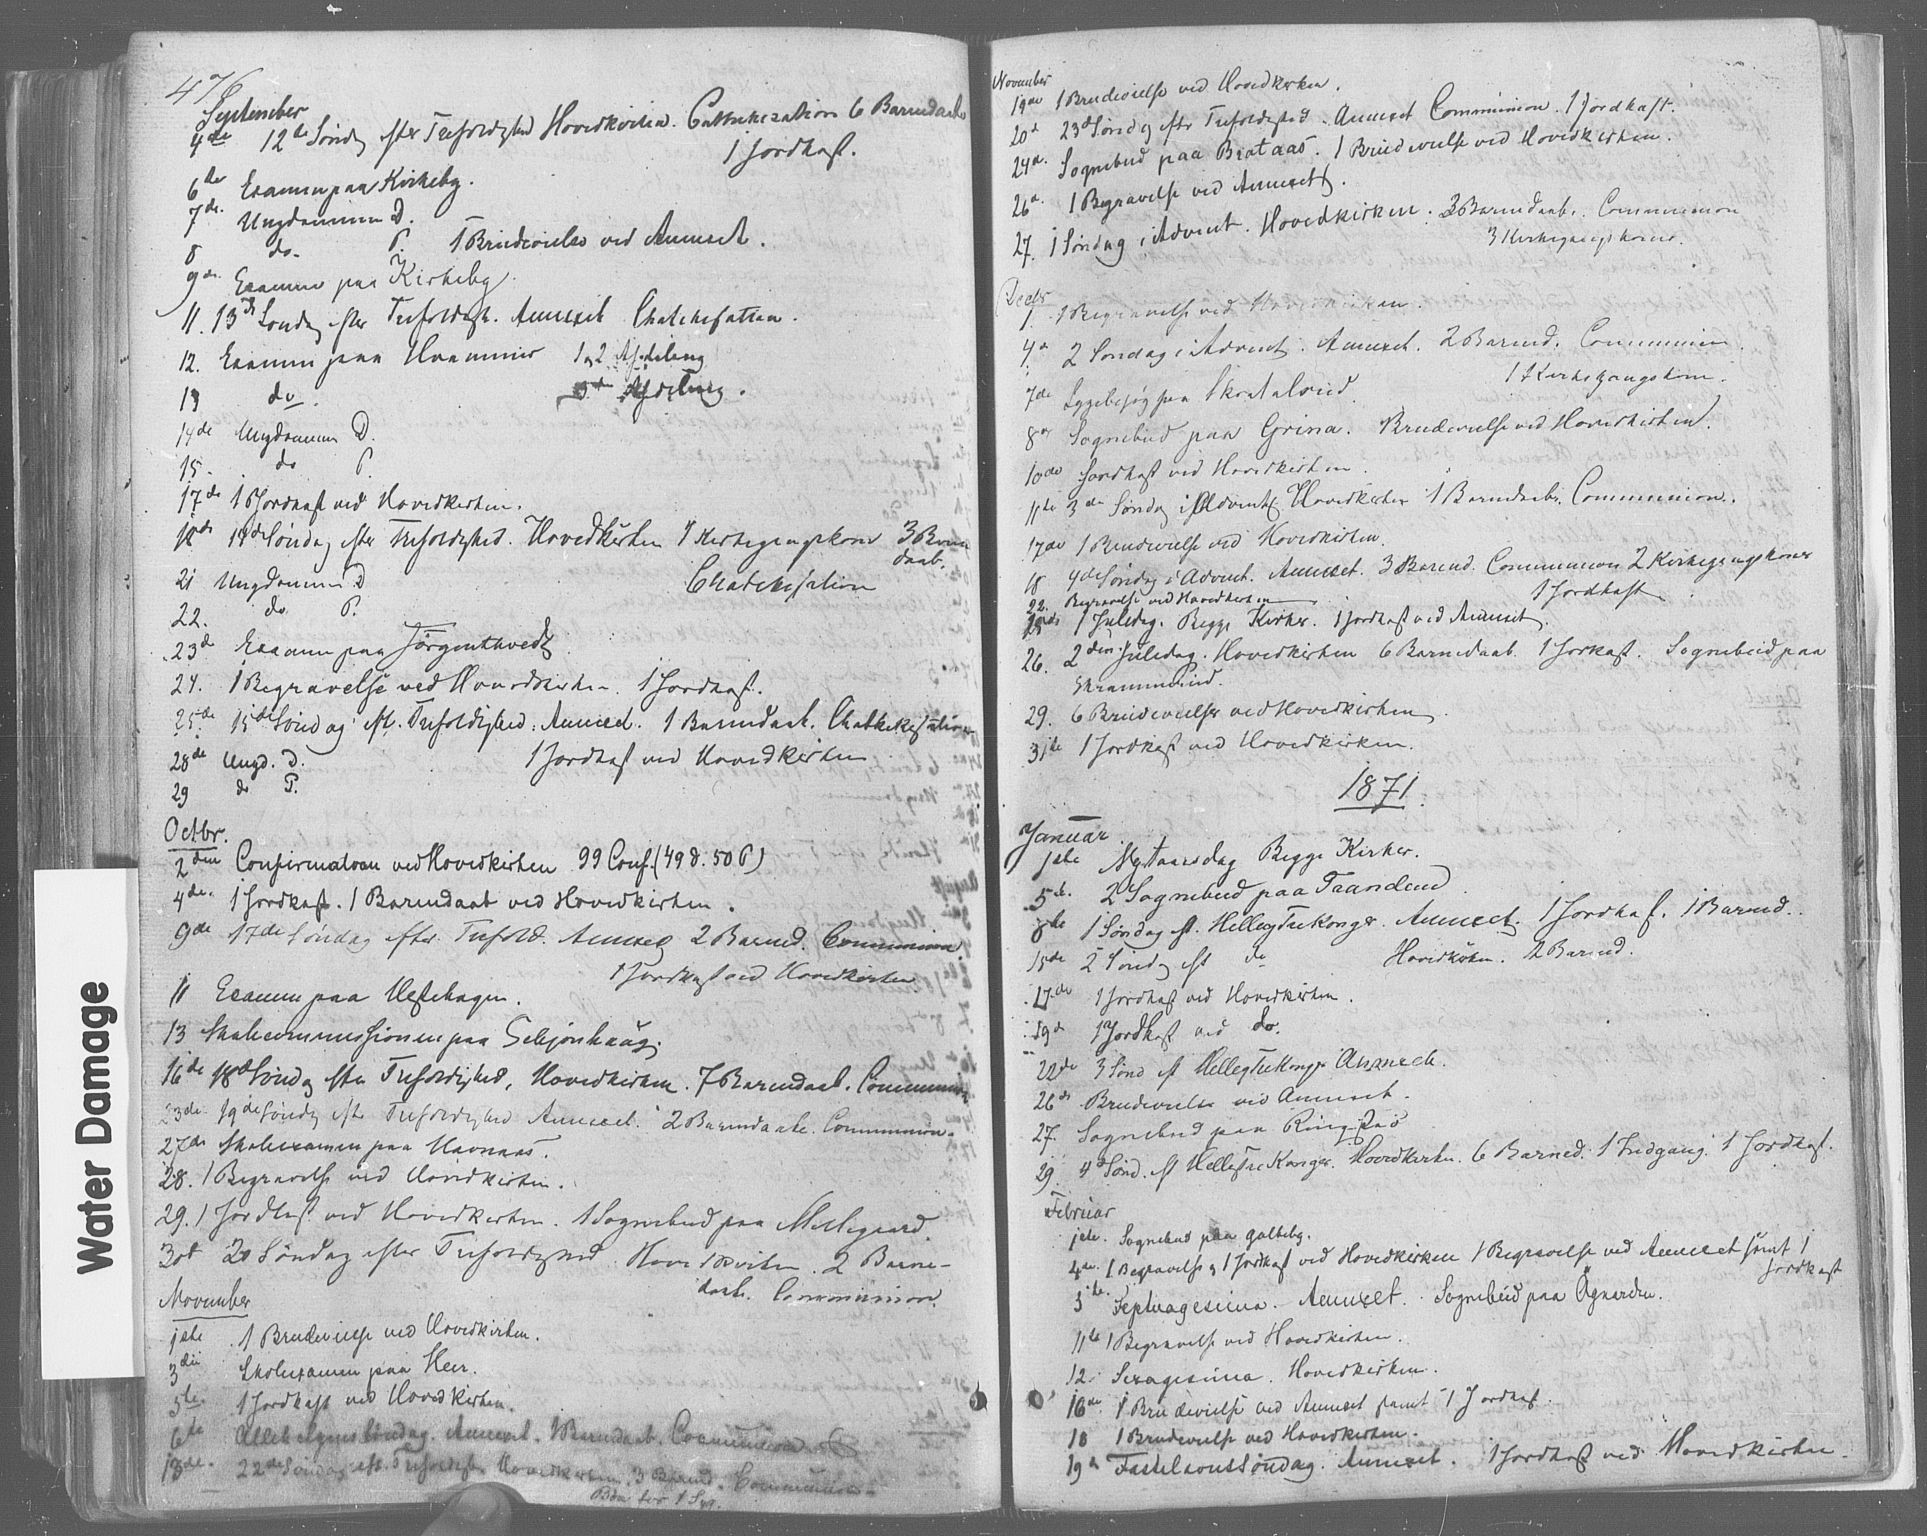 476
September
4de 12te Søndag efter Trefoldighed Hovedkirken. Catechisation 6 Barnedaab
1 Jordkast.
6de Examen paa Kirkeby.
7de Ungdommen D.
8 do. P. 1 Brudevielse ved Annexet.
9de Examen paa Kirkeby
11. 13de Søndag efter Trefoldigh. Annexet Chatechisation.
12. Examen paa 1 og 2 Afdeling
13 do. Afdeling.
14de Ungdommen D.
15. do P.
17de 1 Jordkast ved Hovedkirken.
18de 14de Søndag efter Trefoldighed. Hovedkirken 1 Kirkegangskone 3 Barne
daab.
21 Ungdommen D Chatechisation
22. do P.
23de Examen paa Jørgentvedt
24. 1 Begravelse ved Hovedkirken. 1 Jordkast.
25de 15de Søndag eft. Trefoldighed. Annexet. 1 Barnedaab. Chathekisation
28de Ungd. D. 1 Jordkast ved Hovedkirken
29 do P.
Octbr.
2den Confirmation ved Hovedkirken 99 Conf. (49 D. 50 P)
4de. 1 Jordkast. 1 Barnedaab ved Hovedkirken.
9de 17de Søndag efter Trefold. Annexet 2 Barned. Communion.
1 Jordkast ved Hovedkirken
11 Examen paa
13 Skolecommissionen paa
16de 18de Søndag efter Trefoldighed, Hovedkirken. 7 Barnedaab. Communion
23de 19de Søndag efter Trefoldighed Annexet. 2 Barnedaab. Communion.
27de Skolexamen paa Havnaas.
28. 1 Begravelse ved Hovedkirken.
29. 1 Jordkast ved Hovedkirken. 1 Sognebud paa
30t 20 Søndag efter Trefoldighed Hovedkirken. 2 Barne-
daab. Communion.
November
1ste 1 Brudevielse ved Hovedkirken.
3die Skolexamen paa Heer.
5te 1 Jordkast ved Hovedkirken.
6te Allehelgens Søndag. Annexet. 1 Barnedaab. Communion
13de. 22de Søndag eft. Trefoldigh. Hovedkirken. 3 Barned. Communion
for 1 Syg.
November
19de 1 Brudevielse ved Hovedkirken.
20d 23d Søndag eftr Trefoldighed. Annexet Communion. 1 Jordkast.
24d. Sognebud paa Brataas. 1 Brudevielse ved Hovedkirken.
26d. 1 Begravelse ved Annexet.
27. 1 Søndag i Advent. Hovedkirken. 3 Barnedaab. Communion
3 Kirkegangskoner.
Decbr
1. 1 Begravelse ved Hovedkirken.
4d 2 Søndag i Advent. Annexet. 2 Barned. Communion
1 Kirkegangskone.
7de Sygebesøg paa
8de Sognebud paa Grina. Brudevielse ved Hovedkirken.
10de Jordkast ved Hovedkirken.
11te 3de Søndag i Advent Hovedkirken 1 Barnedaab. Communion.
17de 1 Brudevielse ved Hovedkirken.
18 4de Søndag i Advent. Annexet. 3 Barned. Communion 2 Kirkegangskoner
22. Begravelse ved Hovedkirken 1 Jordkast
25 1 Juledag. Begge Kirker. 1 Jordkast ved Annexet.
26. 2den Juledag. Hovedkirken 6 Barnedaab. 1 Jorkast. Sognebud paa
29. 6 Brudevielser ved Hovedkirken
31te 1 Jordkast ved Hovedkirken.
1871.
Januar
1ste Nytaarsdag Begge Kirker.
5te. 2 Sognebud paa
8de 1 Søndag ef. HelligTreKonger. Annexet. 1 Jordkast. 1 Barned.
15de 2 Søndag eft do Hovedkirken. 2 Barned.
17de 1 Jordkast ved Hovedkirken.
19d 1 Jordkast ved do.
22de 3 Sønd ef HelligTreKonger Annexet.
26de Brudevielse ved Annexet.
27. Sognebud paa
29. 4de Sønd. ef HelligTreKonger. Hovedkirken. 6 Barned. 1 Indgang. 1 Jordkast.
Februar
1ste. Sognebud paa Galteby.
4de. 1 Begravelse og 1 Jordkast ved Hovedkirken 1 Begravelse ved Annexet samt 1
Jordkast
5te. Septuagesima. Annexet. Sognebud paa
11te 1 Begravelse ved Hovedkirken.
12. Sexagesima. Hovedkirken.
16de. 1 Brudevielse ved Annexet samt 1 Jordkast.
18 1 Brudevielse ved Hovedkirken.
19d Fastelavns Søndag. Annexet. 1 Jordkast ved Hovedkirken
Water Damage